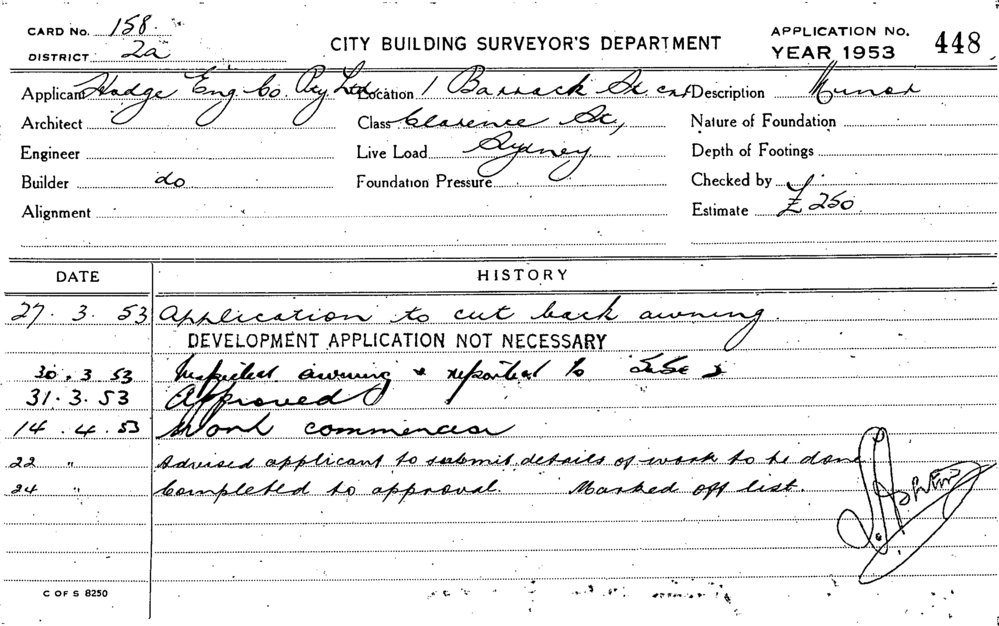 CARD No. 158.
DISTRICT 2a
CITY BUILDING SURVEYOR'S DEPARTMENT
APPLICATION No.
YEAR 1953
448
Applicant Hodge Eng. Co. Pty. Ltd. Location 1 Barrack St. cnr Description Minor
Architect Class Clarence St, Nature of Foundation
Engineer Live Load Sydney Depth of Footings
Builder do Foundation Pressure Checked by
Alignment Estimate £250.
DATE HISTORY
27. 3. 53 Application to cut back awning.
DEVELOPMENT APPLICATION NOT NECESSARY
30. 3 53 Inspected awning & reported to
31. 3. 53 Approved
14. 4. 53 Work commenced
22 " Advised applicant to submit details of work to be done
24 " Completed to approval. Marked off list.
C OF S 8250